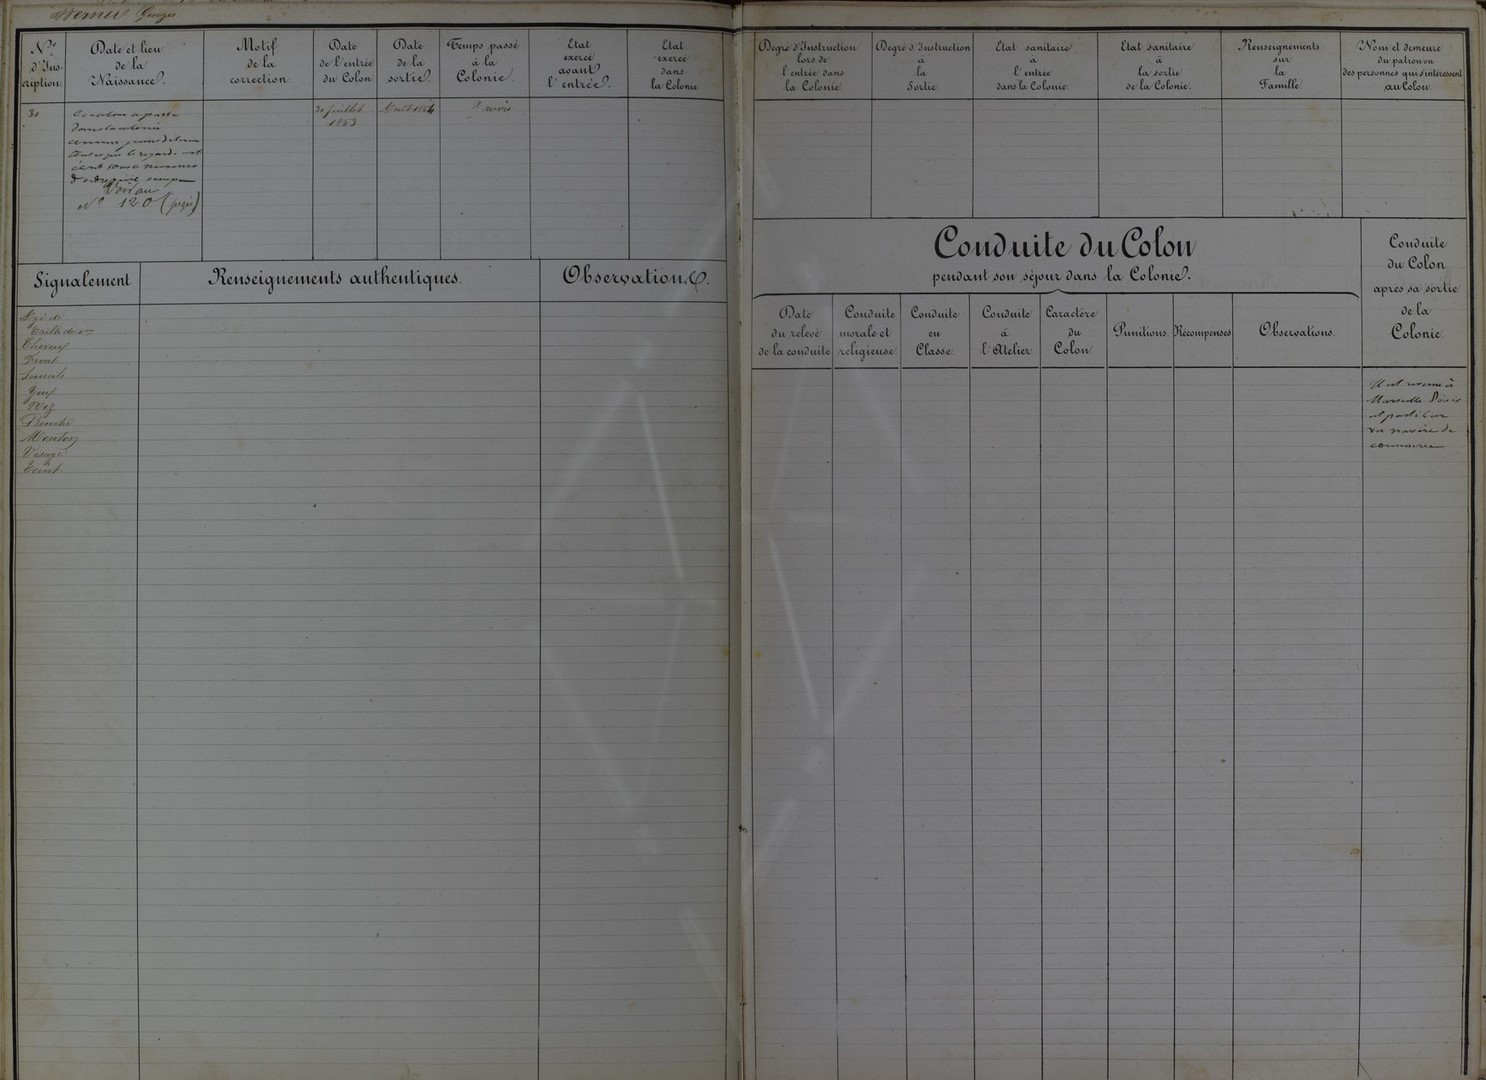 Georges
Nº
d'Ins-
cription
Date et lieu
de la
Naissance.
Motif
de la
correction
Date
de l'entrée
du Colon
Date
de la
sortie.
Temps passé
à la
Colonie.
Etat
exercé
avant
l'entrée.
Etat
exercé
dans
la Colonie
31
Ce colon a passé
dans la colonie
comme jeune détenu
tout ce qui le regarde est
écrit sous le numéro
Voir au
Nº 120 (jugé)
30 Juillet
1853
Août 1854
mois
Signalement
Renseignements authentiques.
Observations.
Taille de 1m
Cheveux
Front
Sourcils
Yeux
Nez
Bouche
Menton
Visage
Teint
Degré d'Instruction
lors de
l'entrée dans
la Colonie
Degré d'Instruction
à
la
Sortie
Etat sanitaire
à
l'entrée
dans la Colonie
Etat sanitaire
à
la sortie
de la Colonie.
Renseignements
sur
la
Famille
Nom et demeure
du patron ou
des personnes qui s'intéressent
au Colon.
Conduite du Colon
pendant son séjour dans la Colonie.
Date
du relevé
de la conduite
Conduite
morale et
religieuse
Conduite
en
Classe
Conduite
à
l'Atelier
Caractère
du
Colon
Punitions
Récompenses
Observations.
Conduite
du Colon
après sa sortie
de la
Colonie
Il est revenu à
Marseille
et parti sur
un navire de
commerce